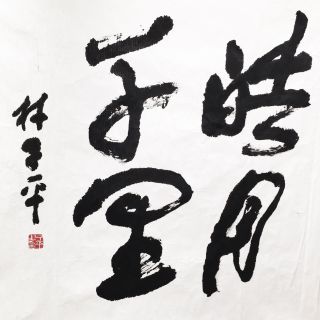 皓月
千里
林子平